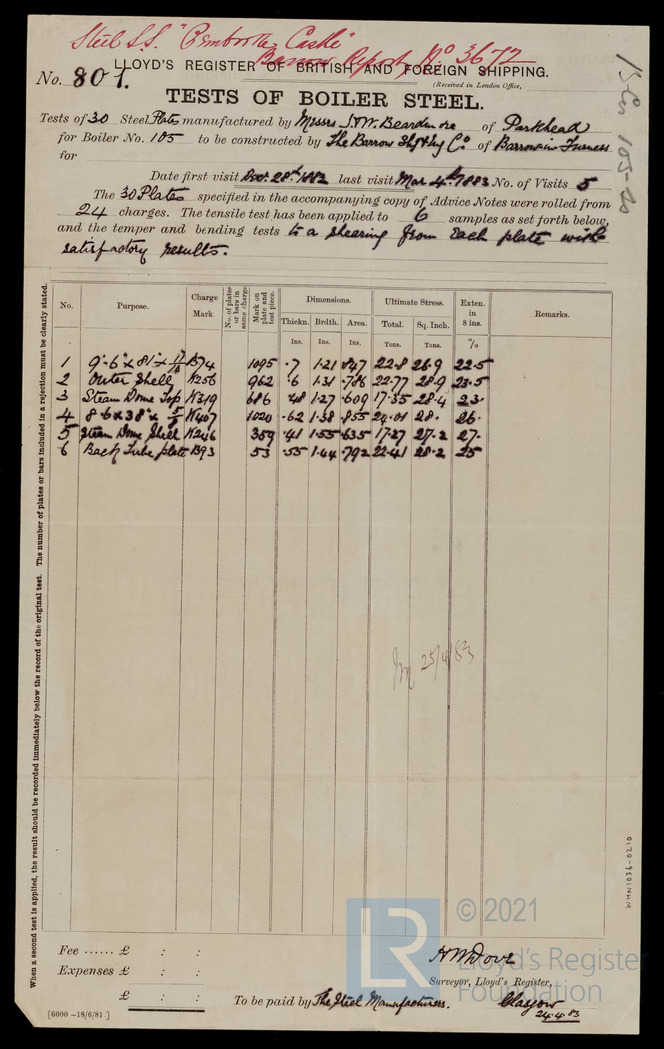 Steel S.S. "Pembroke Castle"
Barrow Report No 3672
LLOYD'S REGISTER OF BRITISH AND FOREIGN SHIPPING.
No. 801.
(Received in London Office,
TESTS OF BOILER STEEL.
Tests of 30 Steel Plates manufactured by Messrs J. & W. Beardmore of Parkhead
for Boiler No. 105 to be constructed by The Barrow Shpbldg Co of Barrow in Furness
for
Date first visit Dec. 28th 1882 last visit Mar 4th 1883 No. of Visits 5
The 30 Plates specified in the accompanying copy of Advice Notes were rolled from
24 charges. The tensile test has been applied to 6 samples as set forth below,
and the temper and bending tests to a shearing from each plate with
satisfactory results.
No. Purpose. Charge Mark. No. of plates or bars in same charge Mark on plate and test piece. Dimensions. Ultimate Stress. Exten. in 8 ins. Remarks.
Thickn. Brdth. Area. Total. Sq. Inch.
Ins. Ins. Ins. Tons. Tons. %
1 9'-6" x 81" x 11/16 B74 1095 .7 1.21 .847 22.8 26.9 22.5
2 Outer Shell K256 962 .6 1.31 .786 22.77 28.9 23.5
3 Steam Dome Top K319 686 .48 1.27 .609 17.35 28.4 23.
4 8.6 x 38" x 5/8 K407 1020 .62 1.38 .855 24.01 28. 26.
5 Steam Dome Shell K246 359 .41 1.55 .635 17.27 27.2 27.
6 Back Tube plate B93 53 .55 1.44 .792 22.41 28.2 25
25/4/83
When a second test is applied, the result should be recorded immediately below the record of the original test. The number of plates or bars included in a rejection must be clearly stated.
HWN1036-0210
Fee ...... £ : :
Expenses £ : :
£ : :
H W Dove
Surveyor, Lloyd's Register,
To be paid by The Steel Manufacturers. Glasgow
24.4.83
[6000 –18/6/81 ]
LR
© 2021
Lloyd's Register
Foundation